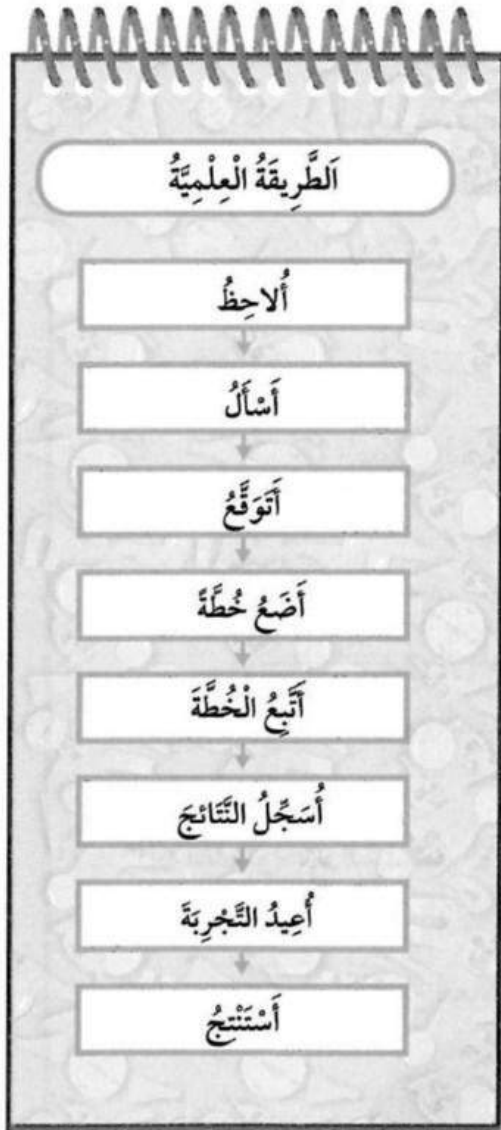 اَلطَّرِيقَةُ الْعِلْمِيَّةُ
أُلاحِظُ
أَسْأَلُ
أَتَوَقَّعُ
أَضَعُ خُطَّةً
أَتَّبِعُ الْخُطَّةَ
أُسَجِّلُ النَّتَائجَ
أُعِيدُ التَّجْرِبَةَ
أَسْتَنْتجُ